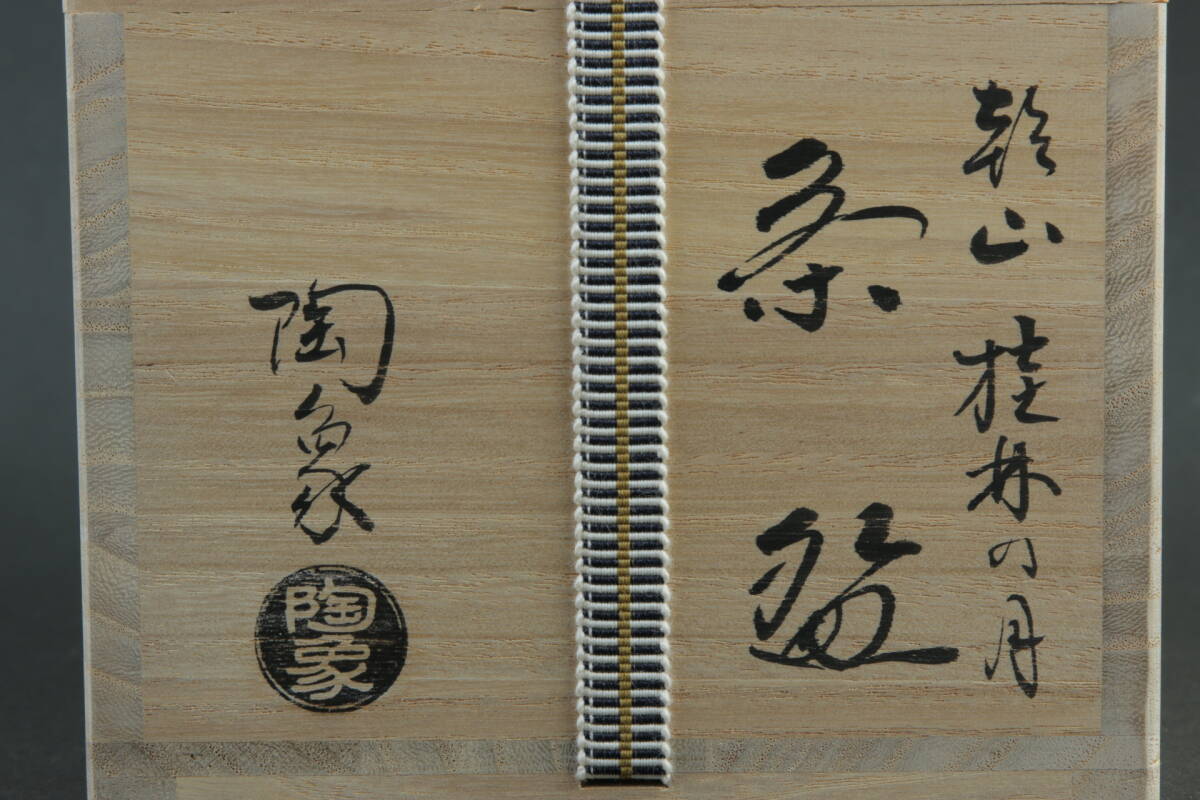 乾山 桂林の月
茶盌
陶象
陶象